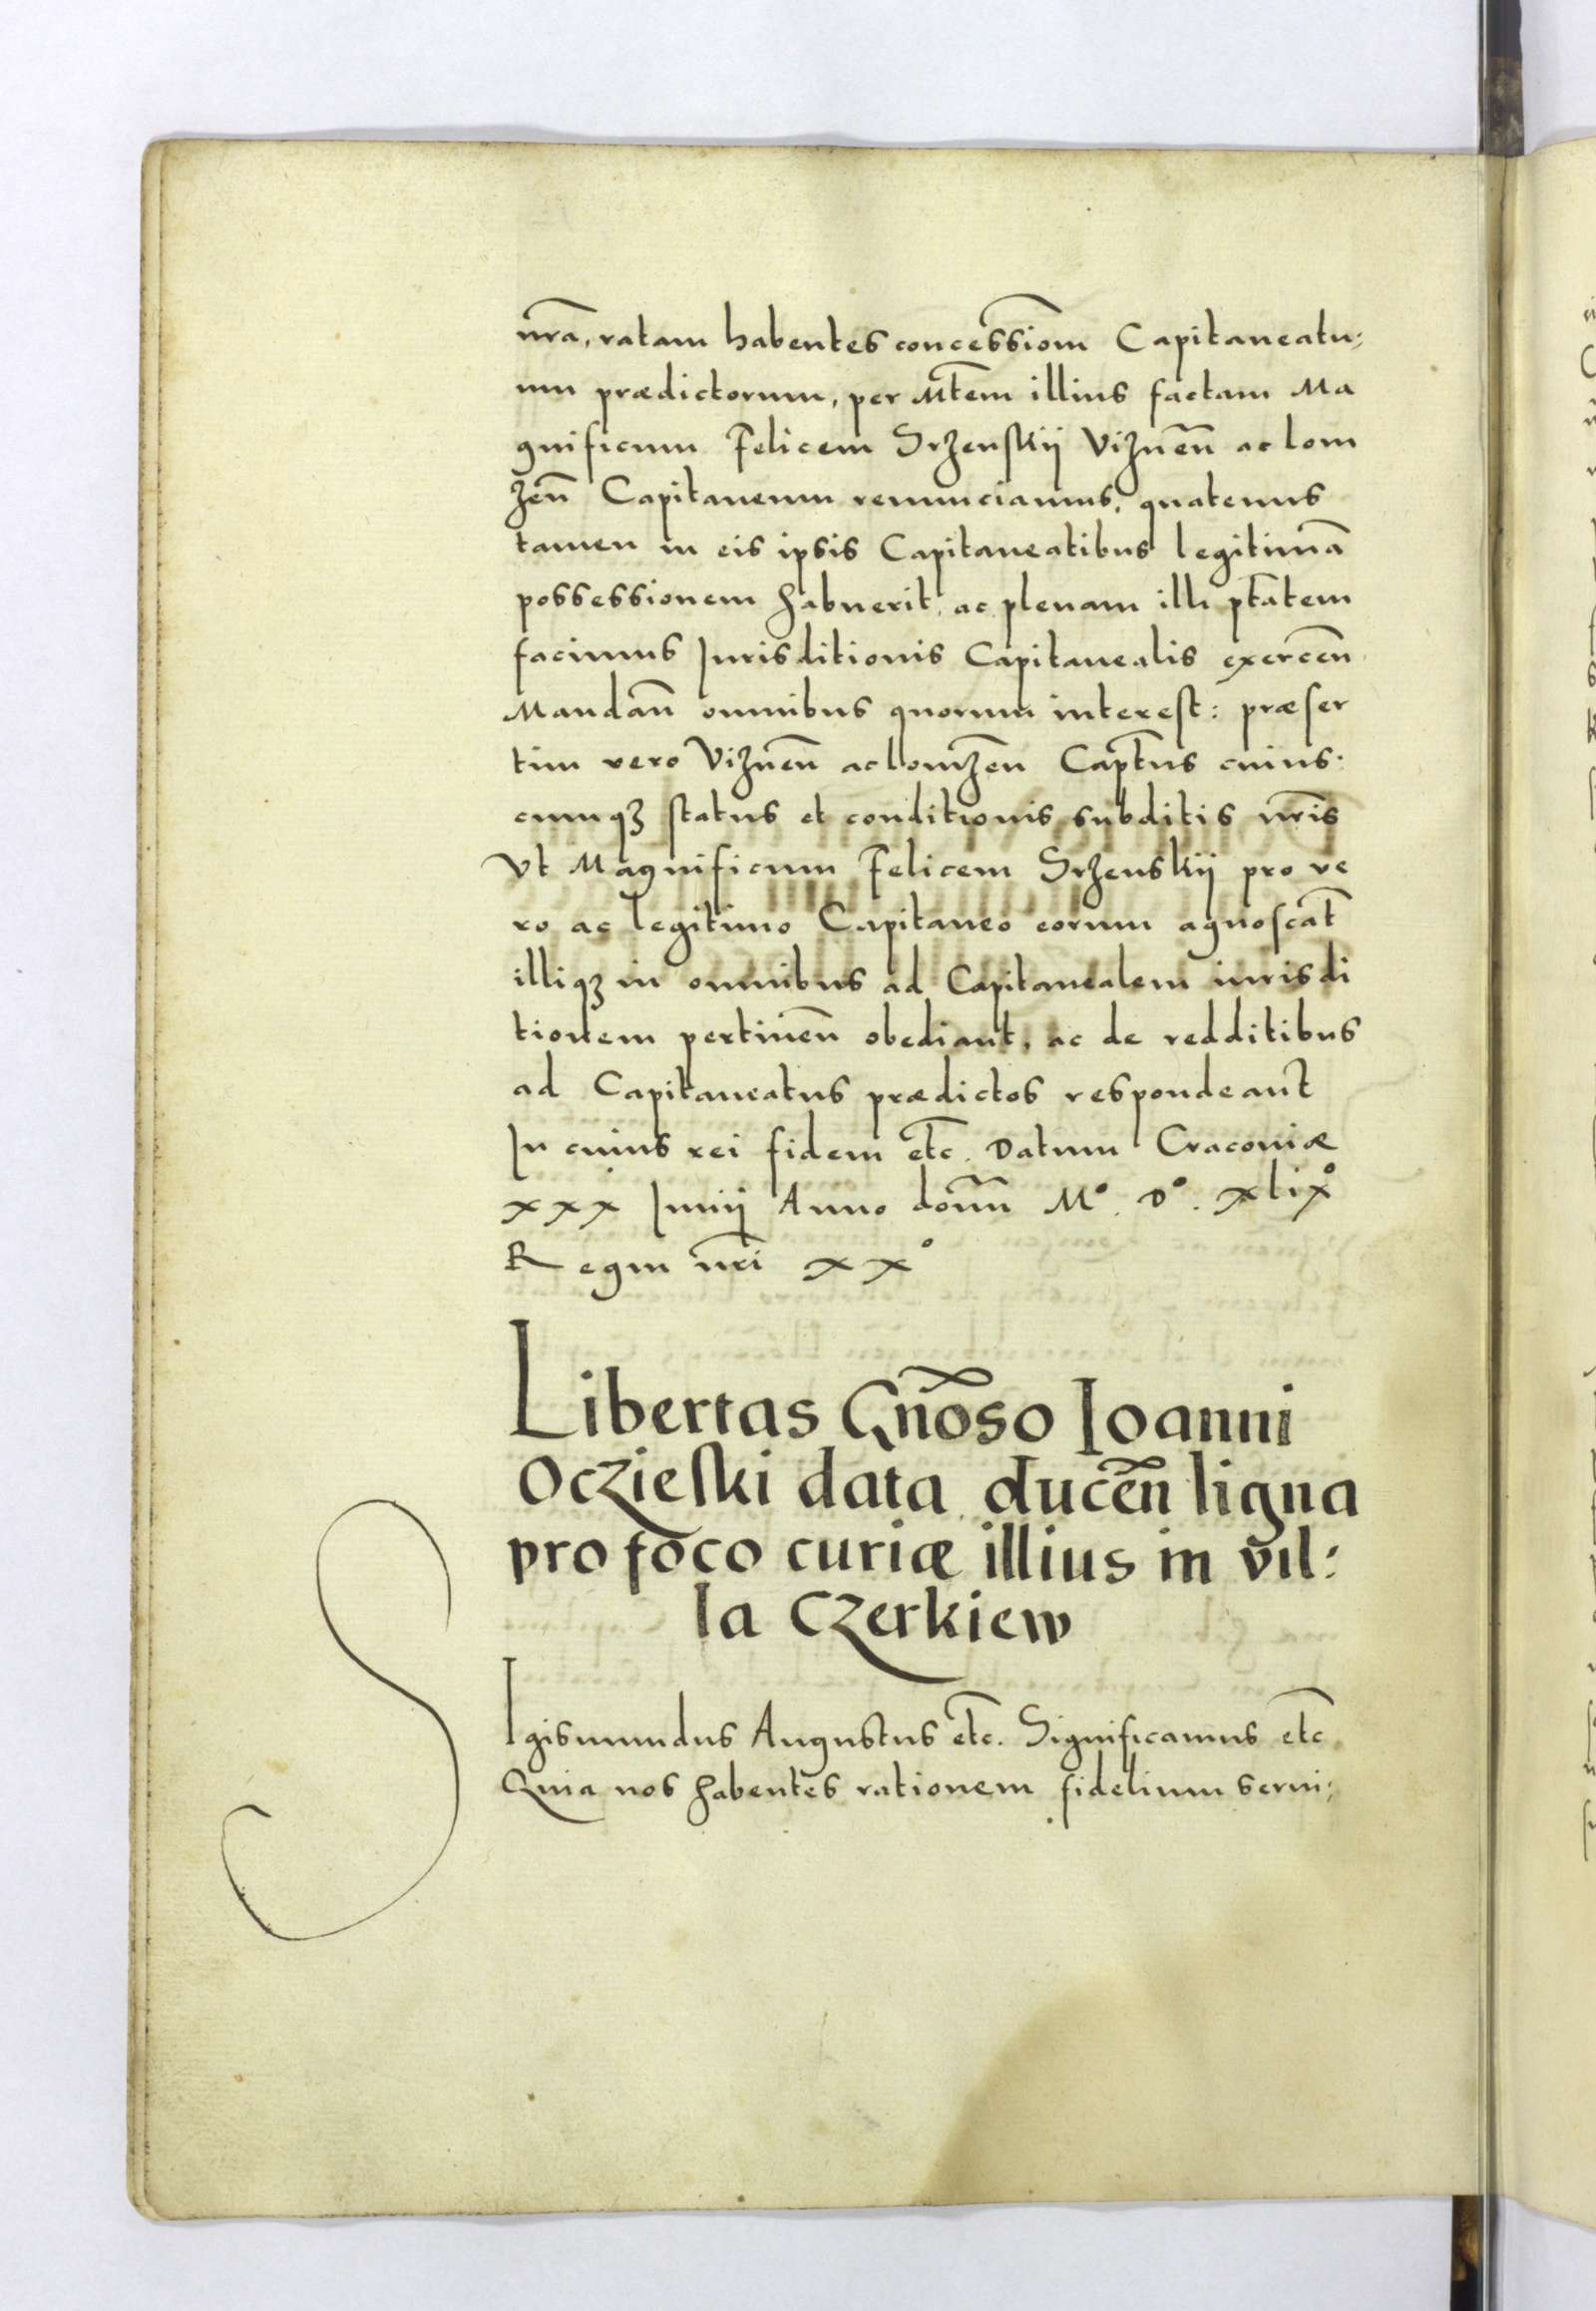 nr̃a, ratam habentes concessiom̃ Capitaneatu:
um prædictorum, per Mt̃em illius factam Ma
gnificum Felicem Srzenskij Viznen̄ ac lom
zen̄ Capitaneum renunciamus, quatenus
tamen in eis ipsis Capitaneatibus legitimā
possessionem habuerit, ac plenam illi pt̃atem
facimus Jurisditionis Capitanealis exercen̄
Mandan̄ omnibus quorum interest: præser
tim vero Viznen̄ ac lomzen̄ Capt̃us cuius:
cumqȝ status et conditionis subditis nr̃is
Vt Magnificum Felicem Srzenskij pro ve
ro ac legitimo Capitaneo eorum agnoscāt
illiqȝ in omnibus ad Capitanealem iurisdi
tionem pertinen̄ obediant, ac de redditibus
ad Capitaneatus prædictos respondeant
In cuius rei fidem etc̃. Datum Cracoviæ
xxx Junij Anno domī M°. D°. xlix°
Regni nr̃i xx°
Libertas Gn̄oso Ioanni
Oczieski data ducen̄ ligna
pro foco curiæ illius in vil:
la Czerkiew
SIgismundus Augustus etc̃. Significamus etc̃
Quia nos habentes rationem fidelium serui: